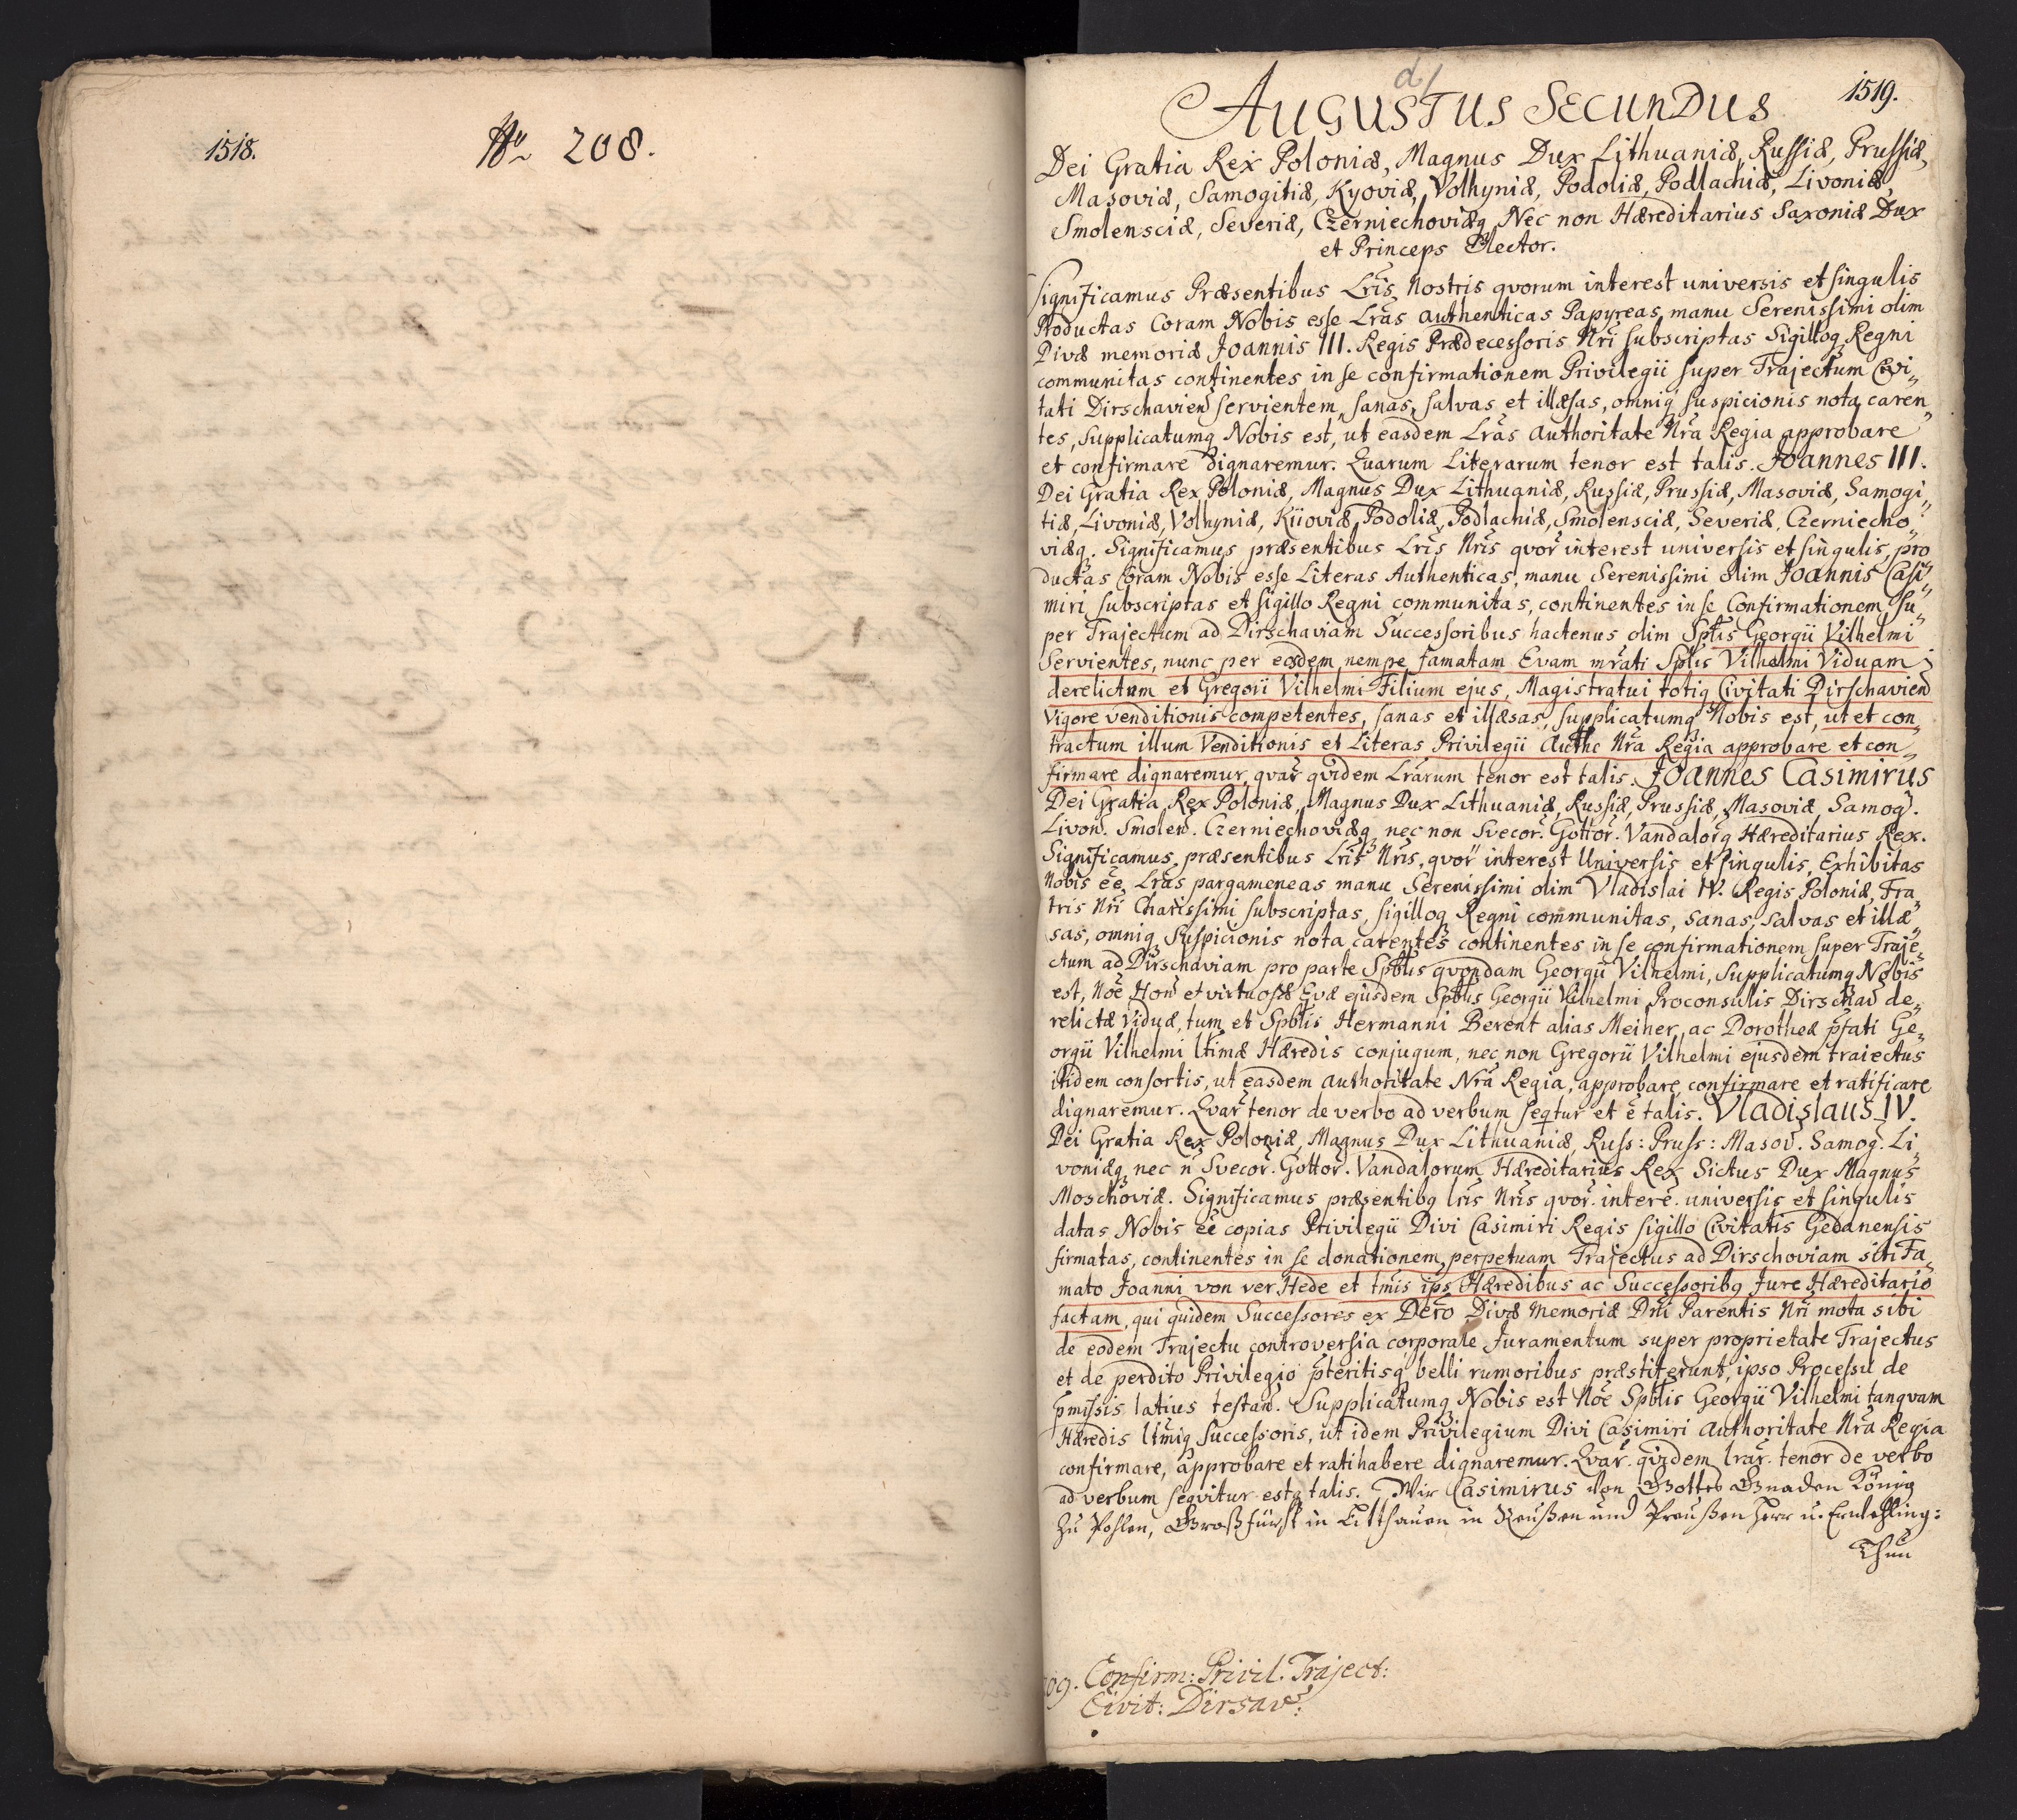 1518.
No 208.
d/
1519.
AUGUSTUS SECUNDUS
Dei Gratia Rex Poloniæ, Magnus Dux Lithuaniæ, Russiæ, Prussiæ,
Masoviæ, Samogitiæ, Kyoviæ, Volhyniæ, Podoliæ, Podlachiæ, Livoniæ,
Smolensciæ, Severiæ, Czerniechoviæq Nec non Hæreditarius Saxoniæ Dux
et Princeps Elector.
Significamus Præsentibus Lris Nostris qvorum interest universis et singulis
Productas Coram Nobis esse Lras authenticas Papyreas manu Serenissimi olim
Divæ memoriæ Joannis III. Regis Prædecessoris Nri subscriptas Sigilloq Regni
communitas continentes in se confirmationem Privilegii super Trajectum Civi„
tati Dirschavien servientem, sanas, salvas et illæsas, omniq suspicionis nota caren„
tes, Supplicatumq Nobis est, ut easdem Lras authoritate Nra Regia approbare
et confirmare dignaremur. Quarum Literarum tenor est talis. Joannes III.
Dei Gratia Rex Poloniæ, Magnus Dux Lithuaniæ, Russiæ, Prussiæ, Masoviæ, Samogi„
tiæ, Livoniæ, Volhyniæ, Kiioviæ, Podoliæ, Podlachiæ, Smolensciæ, Severiæ, Czerniecho„
viæq. Significamus præsentibus Lris Nris qvor interest universis et singulis, pro„
ductas Coram Nobis esse Literas Authenticas, manu Serenissimi olim Joannis Casi„
miri subscriptas et sigillo Regni communitas, continentes in se Confirmationem Su„
per Trajectum ad Dirschaviam Successoribus hactenus olim Sptis Georgii Vilhelmi
Servientes, nunc per eosdem nempe famatam Evam mrati Splis Vilhelmi Viduam
derelictam et Gregorii Vilhelmi Filium ejus, Magistratui totiq Civitati Dirschavien
Vigore venditionis competentes, sanas et illæsas, supplicatumq Nobis est, ut et con„
tractum illum Venditionis et Literas Privilegii Authe Nra Regia approbare et con„
firmare dignaremur, qvar qvidem Lrarum tenor est talis. Joannes Casimirus
Dei Gratia, Rex Poloniæ, Magnus Dux Lithuaniæ, Russiæ, Prussiæ, Masoviæ, Samog.
Livon. Smolen. Czerniechoviæq nec non Svecor. Gottor. Vandalorq Hæreditarius Rex.
Significamus, præsentibus Lris Nris, qvor interest Universis et singulis, Exhibitas
Nobis ee Lras pargameneas manu Serenissimi olim Vladislai IV. Regis Poloniæ, Fra„
tris Nri Charissimi subscriptas, sigilloq Regni communitas, sanas, salvas et illæ„
sas, omniq Suspicionis nota carentes continentes in se confirmationem super Traje„
ctum ad Dirschaviam pro parte Spblis qvondam Georgii Vilhelmi, Supplicatumq Nobis
est, Noe Hon et virtuosæ Evæ ejusdem Spblis Georgii Vilhelmi Proconsulis Dirschav de„
relictæ Viduæ, tum et Spblis Hermanni Berent alias Meiner, ac Dorotheæ pfati Ge„
orgii Vilhelmi ltimæ Hæredis conjugum, nec non Gregorii Vilhelmi ejusdem traiectus
itidem consortis, ut easdem authoritate Nra Regia, approbare, confirmare et ratificare
dignaremur. Qvar tenor de verbo ad verbum seqtur et e talis. Vladislaus IV.
Dei Gratia Rex Poloniæ, Magnus Dux Lithuaniæ, Russ: Pruss: Masov. Samog. Li„
voniæq nec n Svecor. Gottor. Vandalorum Hæreditarius Rex Eictus Dux Magnus
Moschoviæ. Significamus præsentibq lris Nris qvor. intere. universis et singulis
datas Nobis ee copias Privilegii Divi Casimiri Regis sigillo Civitatis Gedanensis
firmatas, continentes in se donationem, perpetuam Trajectus ad Dirschoviam siti Fa„
mato Joanni von ver Hede et tmis ips Hæredibus ac Successoribq Jure Hæreditario
factam, qui quidem Successores ex Dero Divæ Memoriæ Dni Parentis Nri mota sibi
de eodem Trajectu controversia corporale Juramentum super proprietate Trajectus
et de perdito Privilegio pteritisq belli rumoribus præstiterunt, ipso Processu de
pmissis latius testan. Supplicatumq Nobis est Noe Spblis Georgii Vilhelmi tanqvam
Hæredis ltmiq Successoris, ut idem Privilegium Divi Casimiri Authoritate Nra Regia
confirmare, approbare et ratihabere dignaremur. Qvar. qvidem lrar. tenor de verbo
ad verbum seqvitur estq talis. Wir Casimirus von Gottes Gnaden König
Zu Pohlen, Großfürst in Litthauen in Reußen und Preußen Herr u. Erbling:
Thun
09. Confirm: Privil. Traject:
Civit: Dirsav: